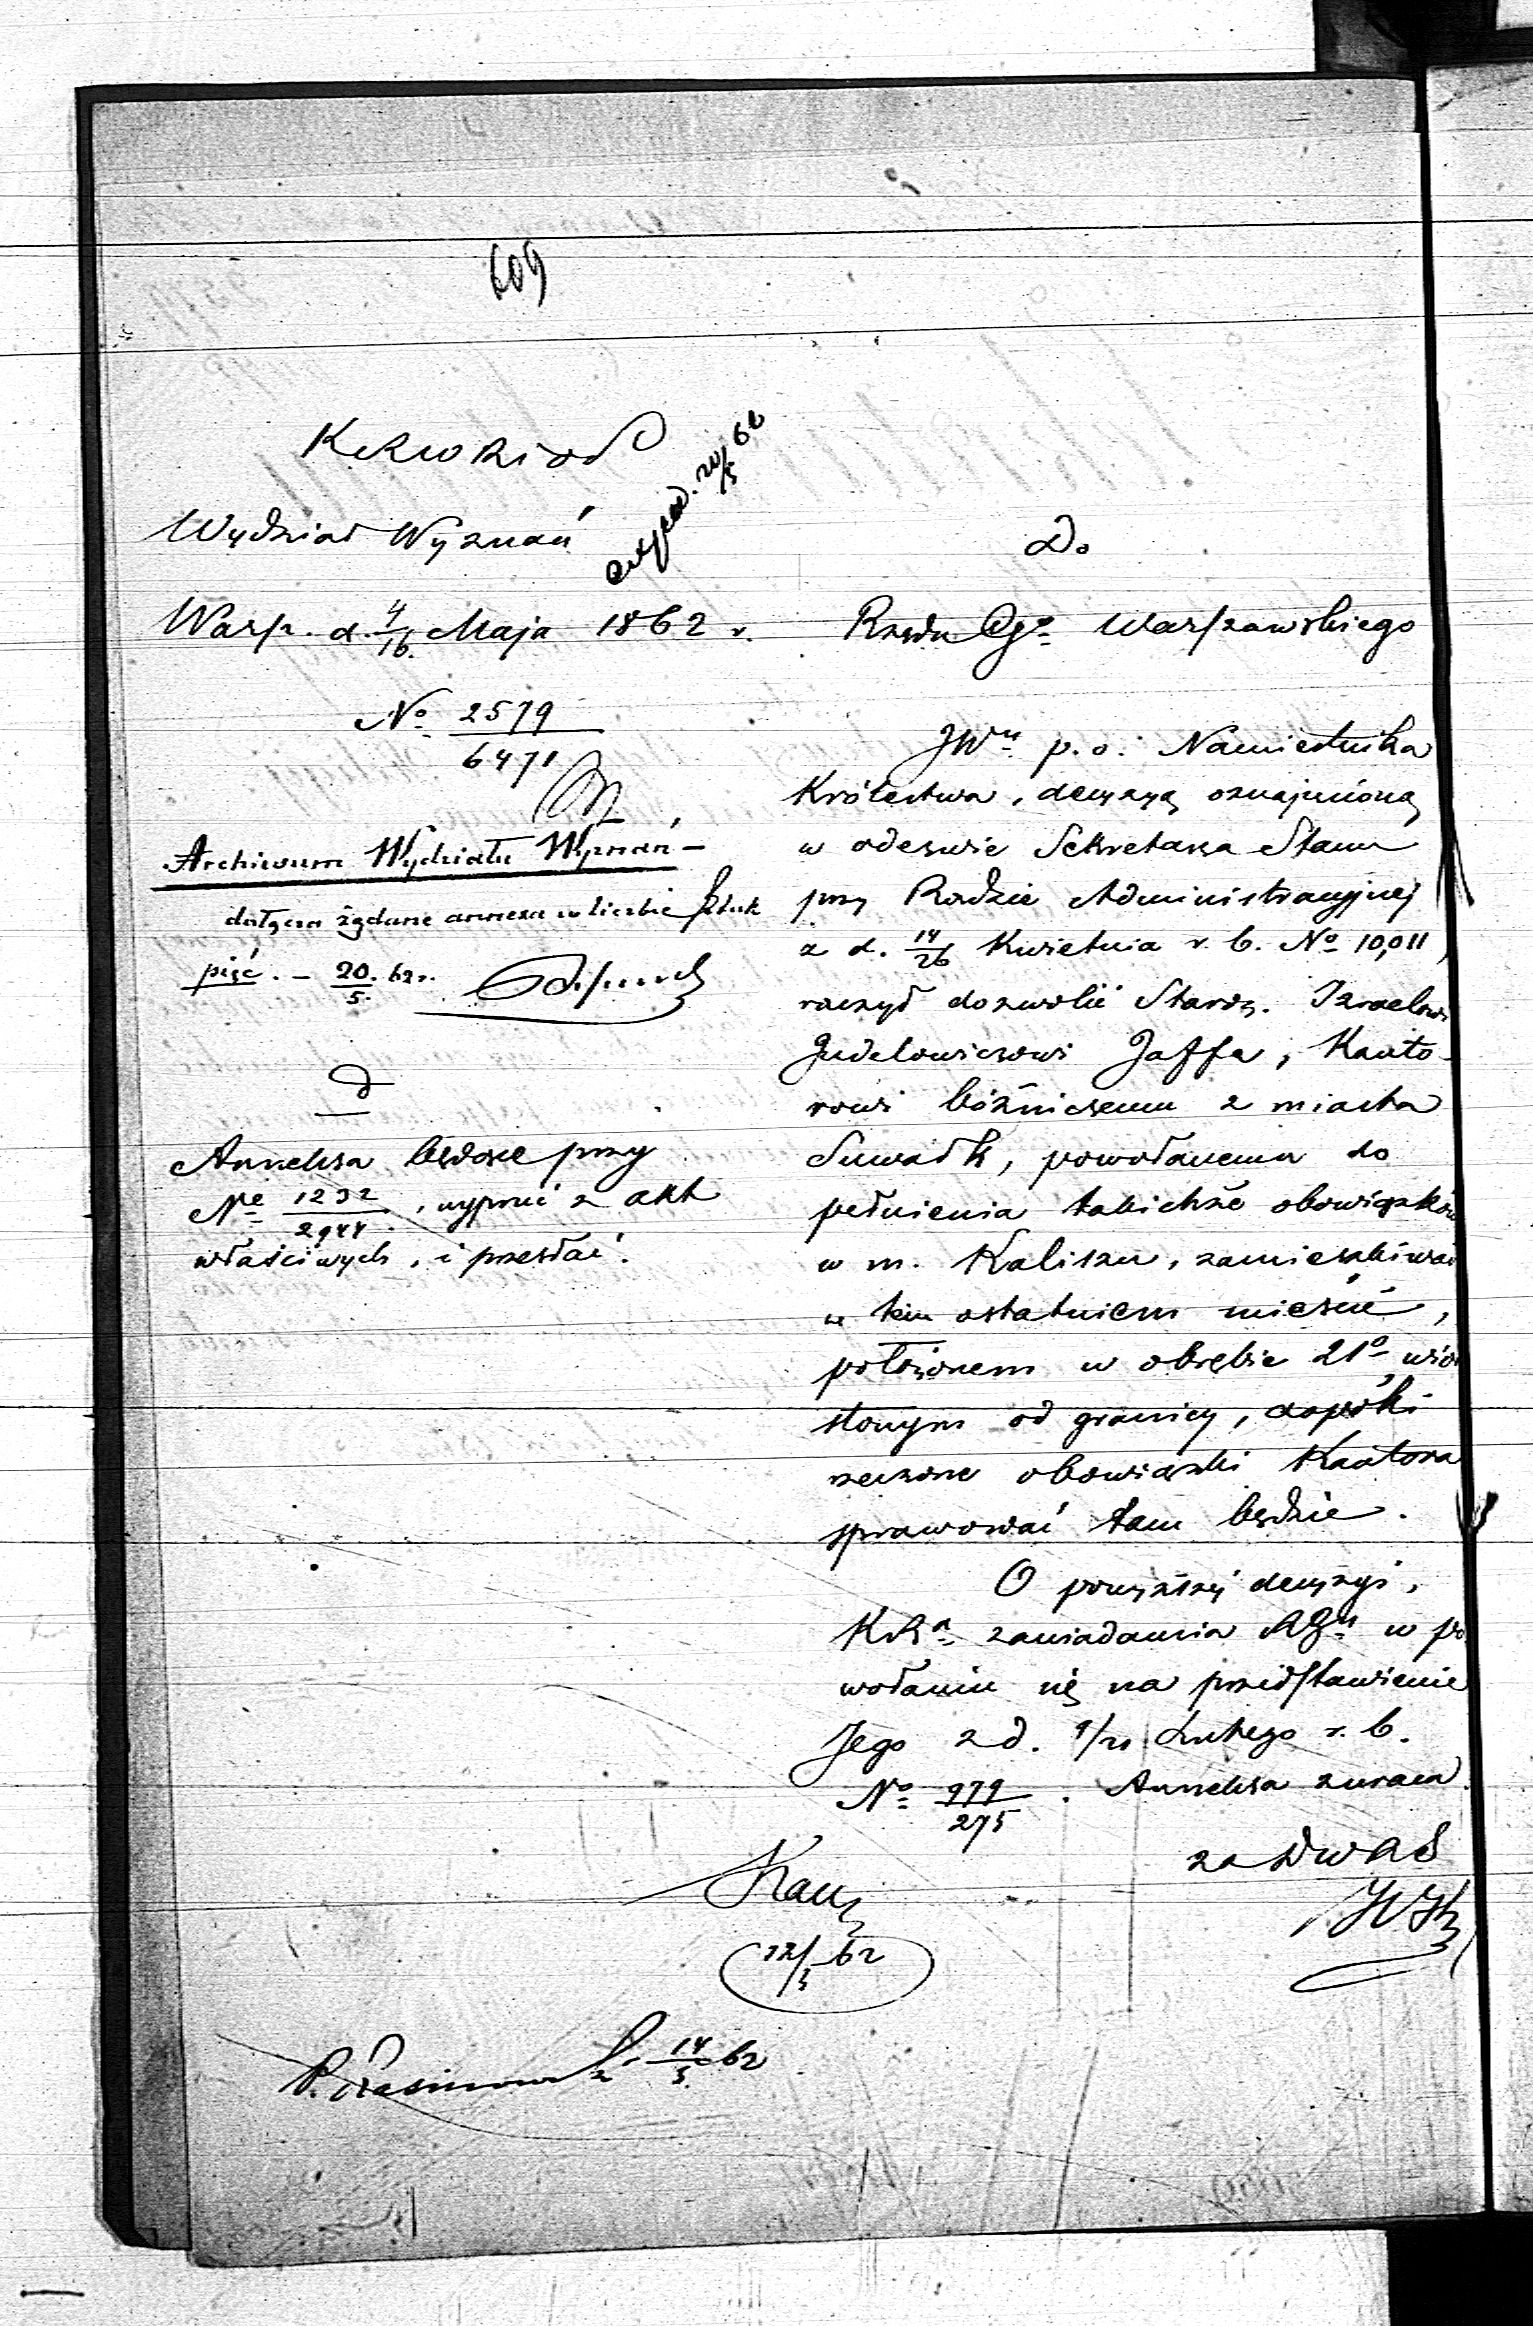 609
KRWRiOP
Wydział Wyznań
Warsz. d. 4/16 Maja 1862 r.
No 2579/6471
Archiwum Wydziału Wyznań –
dołącza żądane annexa w liczbie sztuk
pięć. – 20/5. 62 r.
Anneksa będące przy
Ne 1232/2944, wypruć z akt
właściwych, i przesłać.
Do
Rządu Ggo Warszawskiego
JWny p. o. Namiestnika
Królestwa, decyzyą oznajmioną
w odezwie Sekretarza Stanu
przy Radzie Administracyjnej
z d. 14/26 Kwietnia r. b. No 10,011,
raczył dozwolić Staroz. Izraelowi
Judelowiczowi Jaffe, Kanto-
rowi bóżniczemu z miasta
Suwałk, powołanemu do
pełnienia takichże obowiązków
w m. Kaliszu, zamieszkiwać
w tém ostatniem mieście,
położonem w obrębie 21o wior
stowym od granicy, dopóki
rzeczone obowiązki Kantora
sprawować tam będzie.
O powyższej decyzyi,
KRa zawiadamia RGy w po
wołaniu się na przedstawienie
Jego z d. 9/21 Lutego r. b.
No 979/275. Anneksa zwraca.
12/5 62
14/5 62